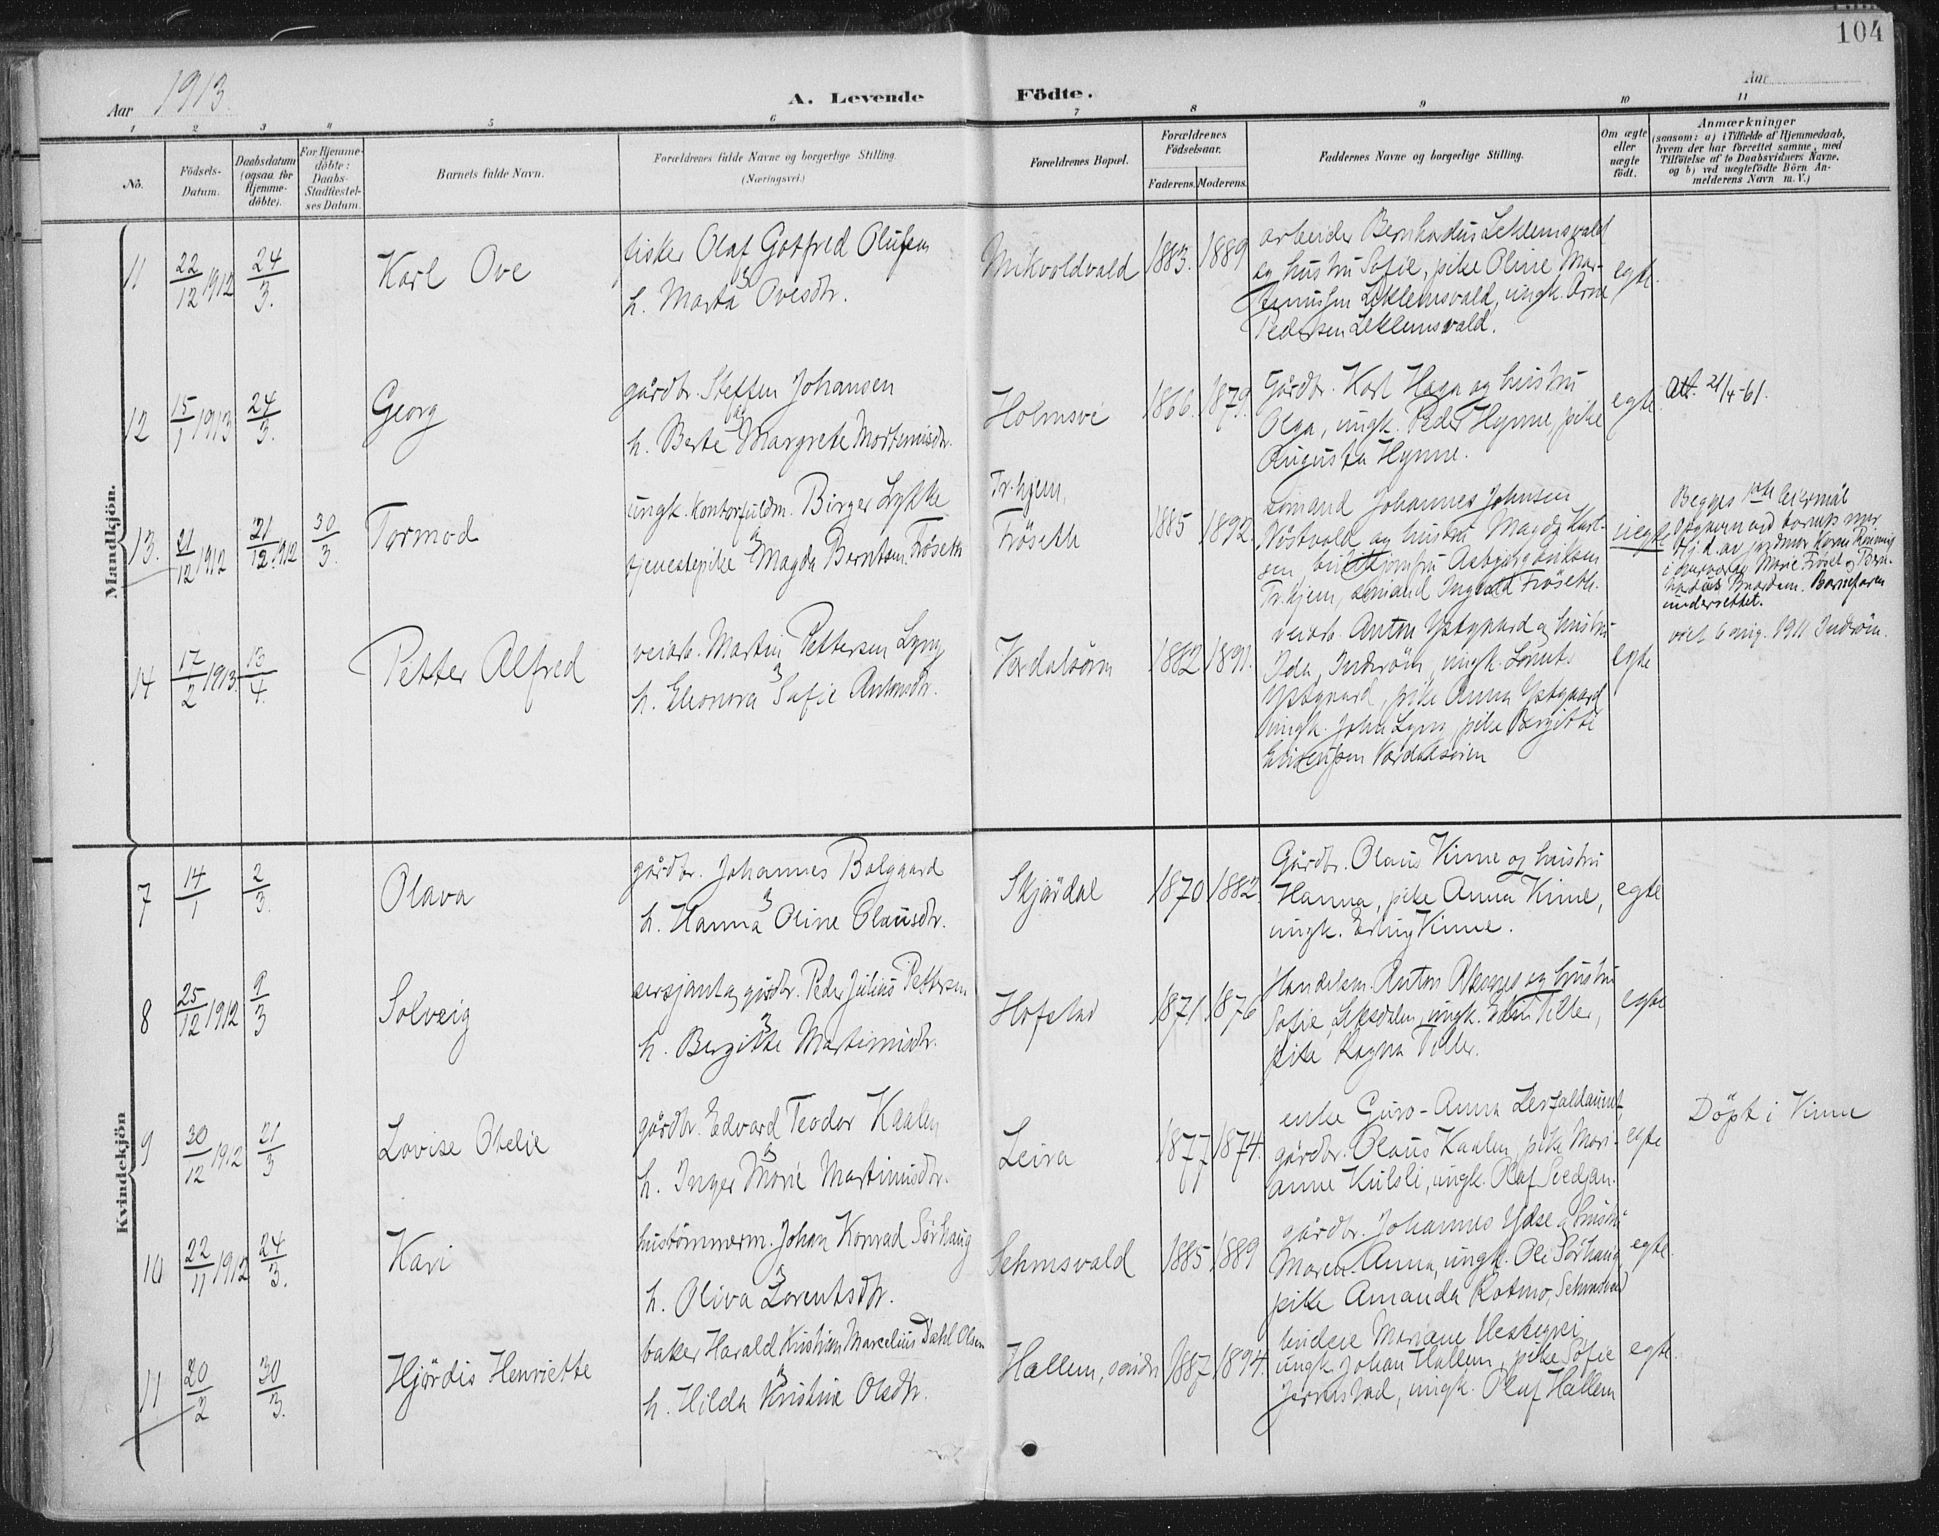 104
Aar 1913.
A. Levende Födte.
Aar
1 2 3 4 5 6 7 8 9 10 11
No.
Födsels-Datum.
Daabsdatum (ogsaa for Hjemme-döbte).
For Hjemme-döbte: Daabs-Stadfæstel-ses Datum.
Barnets fulde Navn.
Forældrenes fulde Navne og borgerlige Stilling.
(Næringsvei.)
Forældrenes Bopæl.
Forældrenes Födselsaar.
Faderens. Moderens.
Faddernes Navne og borgerlige Stilling.
Om ægte eller uægte födt.
Anmærkninger
(saasom: a) i Tilfælde af Hjemmedaab,
hvem der har forrettet samme, med
Tilföielse af to Daabsvidners Navne,
og b) ved uægtefödte Börn An-
melderens Navn m. V.)
Mandkjön.
11 22/12 1912 24/3. Karl Ove
fisker Olaf Gotfred Olufsen
h. Marta Ovesdtr.
Mikvoldvald 1883. 1889
arbeider Bernhardus Leklemsvald
og hustru Sofie, pike Oline Mar-
Leklemsvald, ungk. Arne
Pedersen Leklemsvald.
egte.
12 15/1 1913 24/3. Georg
gårdbr. Steffen Johansen
og
h. Berte Margrete Mortensdtr.
Holmsve 1866. 1879.
Gårdbr. Karl Haga og hustru
Olga, ungk. Peder Hynne, pike
Augusta Hynne.
egte
Att. 21/4-61.
13. 21/12 1912 21/12. 1912 30/3. Tormod
ungk. kontorfuldm. Birger Lykke
tjenestepike Magda Berntsen Fröseth
Tr.hjem,
Fröseth
1885 1892.
sömand Johannes Johnsen
og hustru Magda
Tr.hjem, sömand Fröseth.
uegte
Begges 1ste leiermål
i overvær av Marie Fröset og Bern-
Barnefaren
underrettet.
14 17/2 1913. 13/4. Petter Alfred
veiarb. Martin Pettersen Lyng
h. Eleonora Sofie Antonsdtr.
Verdalsörn 1882 1891.
veiarb. Anton Ystgaard og hustru
Ida, Inderöen, ungk. Lorents
Ystgaard, pike Anna Ystgaard
ungk. Johan Lyng, pike Bergitte
Verdalsören
egte
viet 6 aug. 1911 Inderöen.
Kvindekjön
7 14/1 2/3. Olava
gårdbr. Johannes Bolgaard
h. Hanna Oline Olausdtr.
Skjördal 1870 1882.
Gårdbr. Olaus Vinne og hustru
Hanna, pike Anna Vinne,
ungk. Erling Vinne.
egte
8 25/12 1912 9/3 Solveig
sersjant og gårdbr. Peder Julius Pettersen
h. Bergitte Martinusdtr.
Hofstad 1871 1876
Handelsm. Anton og hustru
Sofie, Leksdalen, ungk. Tiller,
pike Ragna Tiller.
egte
9 30/12 1912 21/3 Lovise Otelie
gårdbr. Edvard Teodor Kaalen
h. Inger Marie Martinusdtr.
Leira 1877 1874.
enke Guro-Anna
gårdbr. Olaus Kaalen, pike Mari-
anne Kulsli, ungk. Olaf
egte
Döpt i Vinne
10 22/11 1912 24/3. Kari
hustömmerm. Johan Konrad Sörhaug
h. Oliva Lorentsdtr.
Sehmsvald 1885 1889
gårdbr. Johannes Ydse og hustru
Maren-Anna, ungk. Ole Sörhaug,
pike Amanda Rotmo, Sehmsvald
egte.
11 20/2 30/3. Hjördis Henriette
baker Harald Kristian Marcelius Dahl Olsen
h. Hilda Kristine Olsdtr.
Hallem, söndre 1887 1894.
Mariane
ungk. Johan Hallem, pike Sofie
Jermstad, ungk. Oluf Hallem
egte.